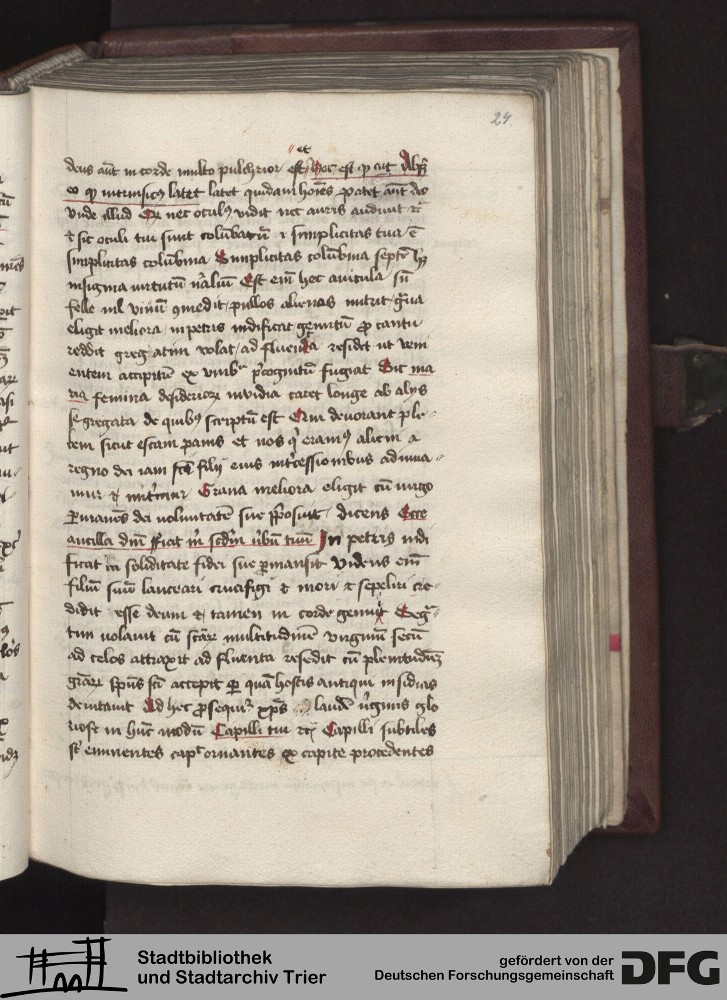 24
et
deus aūt in corde multo pulchrior est hoc est qd ait Absqꝫ
eo qd intrinsecus latet latet quidam hoīes patet aūt deo
vnde illud Cor nec oculꝰ vidit nec auris audiuit rc
⁊ sic oculi tui sunt columbarū ⁊ simplicitas tua ē
simplicitas columbina Simplicitas columbina septē hꝫ
insignia virtutū nāliū Est em̄ hec auicula sn̄
felle nil viuū 9medit pullos alienos nutrit grana
eligit meliora in petris nidificat gemitū ꝓ cantu
reddit gregatim volat ad fluenta residet ut veni
entem accipitrē ex vmbra p̄cognitū fugiat Sic ma
ria femina desideriorꝝ inuidia caret longe ab alijs
segregata de quibꝰ scriptū est Qui deuorant ple
bem sicut escam panis et nos qͥ eramꝰ alieni a
regno dei iam sctī filij eius int͛cessionibus adiuua
mur ⁊ nutrimur Grana meliora eligit cū virgo
ꝑmanēs dei voluntatē sue p̄posuit dicens Ecce
ancilla dn̄i fiat m̄ scdm̄ v̄bū tuū In petris nidi
ficat in soliditate fidei sue ꝑmansit Videns em̄
filiū suū lanceari crucifigi ⁊ mori ⁊ sepeliri cre
didit esse deum ⁊ tamen in corde gemuit Grega
tim volauit cū scārꝝ multitudinē virginū secū
ad celos attraxit ad fluenta resedit cū plenitudinē
grārꝝ spūs scī accepit ꝑ quā hostis antiqui insidias
deuitauit Ad hec ꝓsequitꝛ xp̄s laudē v̄ginis glo
riose in hūc modū Capilli tui rc Capilli subtiles
st̄ eminentes caput ornantes ex capite procedentes
Stadtbibliothek
und Stadtarchiv Trier
gefördert von der
Deutschen Forschungsgemeinschaft
DFG